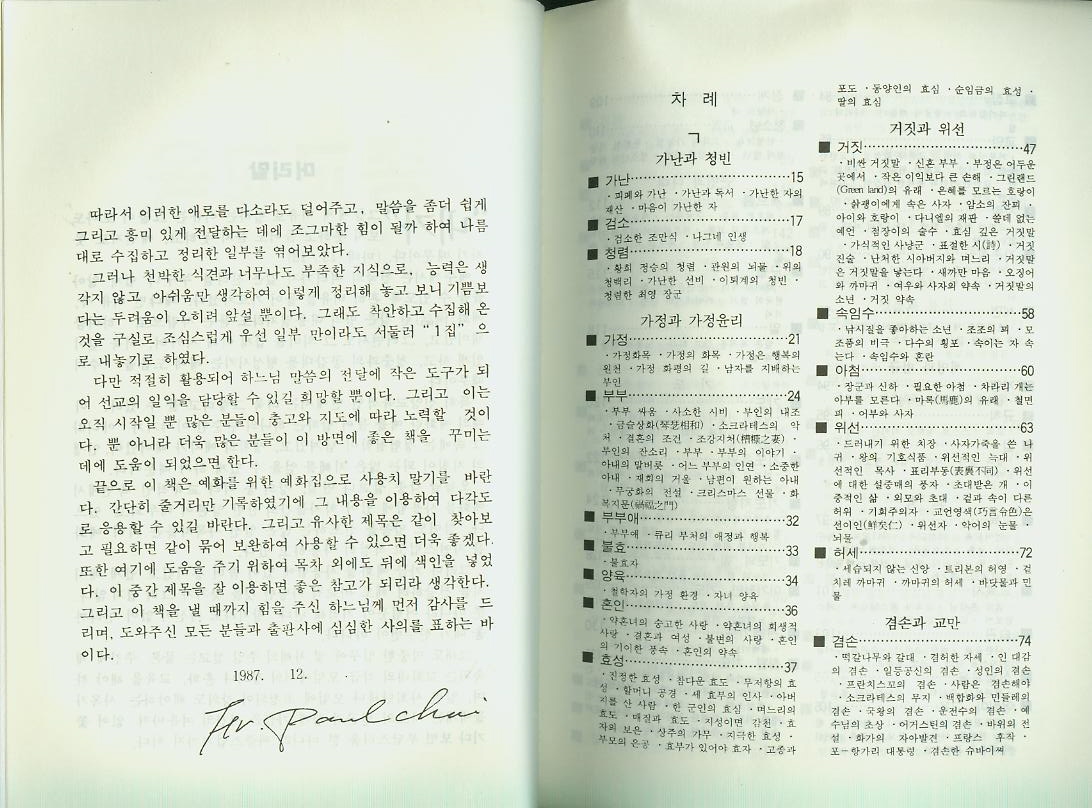 따라서 이러한 애로를 다소라도 덜어주고, 말씀을 좀더 쉽게
그리고 흥미 있게 전달하는 데에 조그마한 힘이 될까 하여 나름
대로 수집하고 정리한 일부를 엮어보았다.
그러나 천박한 식견과 너무나도 부족한 지식으로, 능력은 생
각지 않고 아쉬움만 생각하여 이렇게 정리해 놓고 보니 기쁨보
다는 두려움이 오히려 앞설 뿐이다. 그래도 착안하고 수집해 온
것을 구실로 조심스럽게 우선 일부 만이라도 서둘러 “1집” 으
로 내놓기로 하였다.
다만 적절히 활용되어 하느님 말씀의 전달에 작은 도구가 되
어 선교의 일익을 담당할 수 있길 희망할 뿐이다. 그리고 이는
오직 시작일 뿐 많은 분들이 충고와 지도에 따라 노력할 것이
다. 뿐 아니라 더욱 많은 분들이 이 방면에 좋은 책을 꾸미는
데에 도움이 되었으면 한다.
끝으로 이 책은 예화를 위한 예화집으로 사용치 말기를 바란
다. 간단히 줄거리만 기록하였기에 그 내용을 이용하여 다각도
로 응용할 수 있길 바란다. 그리고 유사한 제목은 같이 찾아보
고 필요하면 같이 묶어 보완하여 사용할 수 있으면 더욱 좋겠다.
또한 여기에 도움을 주기 위하여 목차 외에도 뒤에 색인을 넣었
다. 이 중간 제목을 잘 이용하면 좋은 참고가 되리라 생각한다.
그리고 이 책을 낼 때까지 힘을 주신 하느님께 먼저 감사를 드
리며, 도와주신 모든 분들과 출판사에 심심한 사의를 표하는 바
이다.
1987. 12.
Paul Choi
차 례
ㄱ
가난과 청빈
■ 가난……………………15
·피폐와 가난 ·가난과 독서 ·가난한 자의
재산 ·마음이 가난한 자
■ 검소……………………17
·검소한 조만식 ·나그네 인생
■ 청렴……………………18
·황희 정승의 청렴 ·관원의 뇌물 ·위의
청백리 ·가난한 선비 ·이퇴계의 청빈 ·
청렴한 최영 장군
가정과 가정윤리
■ 가정……………………21
·가정화목 ·가정의 화목 ·가정은 행복의
원천 ·가정 화평의 길 ·남자를 지배하는
부인
■ 부부……………………24
·부부 싸움 ·사소한 시비 ·부인의 내조
·금슬상화(琴瑟相和) ·소크라테스의 악
처 ·결혼의 조건 ·조강지처(糟糠之妻) ·
부인의 잔소리 ·부부 ·부부의 이야기 ·
아내의 말버릇 ·어느 부부의 인연 ·소중한
아내 ·재회의 거울 ·남편이 원하는 아내
·무궁화의 전설 ·크리스마스 선물 ·화
복지문(禍福之門)
■ 부부애……………………32
·부부애 ·큐리 부처의 애정과 행복
■ 불효……………………33
·불효자
■ 양육……………………34
·철학자의 가정 환경 ·자녀 양육
■ 혼인……………………36
·약혼녀의 숭고한 사랑 ·약혼녀의 희생적
사랑 ·결혼과 여성 ·불변의 사랑 ·혼인
의 기이한 풍속 ·혼인의 약속
■ 효성……………………37
·진정한 효성 ·참다운 효도 ·무저항의 효
성 ·할머니 공경 ·세 효부의 인사 ·아버
지를 산 사람 ·한 군인의 효심 ·며느리의
효도 ·매질과 효도 ·지성이면 감천 ·효
자의 보은 ·상주의 가무 ·지극한 효성 ·
부모의 은공 ·효부가 있어야 효자 ·고종과
포도 ·동양인의 효심 ·순임금의 효성 ·
딸의 효심
거짓과 위선
■ 거짓……………………47
·비싼 거짓말 ·신혼 부부 ·부정은 어두운
곳에서 ·작은 이익보다 큰 손해 ·그린랜드
(Green land)의 유래 ·은혜를 모르는 호랑이
·살쾡이에게 속은 사자 ·암소의 잔꾀 ·
아이와 호랑이 ·다니엘의 재판 ·쓸데 없는
예언 ·점장이의 술수 ·효심 깊은 거짓말
·가식적인 사냥군 ·표절한 시(詩) ·거짓
진술 ·난처한 시아버지와 며느리 ·거짓말
은 거짓말을 낳는다 ·새까만 마음 ·오징어
와 까마귀 ·여우와 사자의 약속 ·거짓말의
소년 ·거짓 약속
■ 속임수……………………58
·낚시질을 좋아하는 소년 ·조조의 꾀 ·모
조품의 비극 ·다수의 횡포 ·속이는 자 속
는다 ·속임수와 혼란
■ 아첨……………………60
·장군과 신하 ·필요한 아첨 ·차라리 개는
아부를 모른다 ·마록(馬鹿)의 유래 ·철면
피 ·어부와 사자
■ 위선……………………63
·드러내기 위한 치장 ·사자가죽을 쓴 나
귀 ·왕의 기호식품 ·위선적인 늑대 ·위
선적인 목사 ·표리부동(表裏不同) ·위선
에 대한 설중매의 풍자 ·초대받은 개 ·이
중적인 삶 ·외모와 초대 ·겉과 속이 다른
허위 ·기회주의자 ·교언영색(巧言令色)은
선이인(鮮矣仁) ·위선자 ·악어의 눈물 ·
뇌물
■ 허세……………………72
·세습되지 않는 신앙 ·트리폰의 허영 ·겉
치레 까마귀 ·까마귀의 허세 ·바닷물과 민
물
겸손과 교만
■ 겸손……………………74
·떡갈나무와 갈대 ·겸허한 자세 ·인 대감
의 겸손 ·일등공신의 겸손 ·성인의 겸손
·프란치스꼬의 겸손 ·사람은 겸손해야
·소크라테스의 무지 ·백합화와 민들레의
겸손 ·국왕의 겸손 ·운전수의 겸손 ·예
수님의 초상 ·어거스틴의 겸손 ·바위의 전
설 ·화가의 자아발견 ·프랑스 후작 ·
포─항가리 대통령 ·겸손한 슈바이쩌